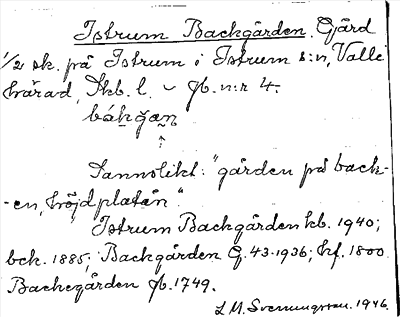 Istrum Backgården. Gjärd
1/2 sk. på Istrum i Istrum s:n, Valle
härad, Skb. l. jb. n:r 4.
Sannolikt: "gården på back-
-en, höjdplatån".
Istrum Backgården kb. 1940;
bck. 1885; Backgården G. 43-1936; hf. 1800.
Backegården jb. 1749.
L. M. Svenungsson. 1946.